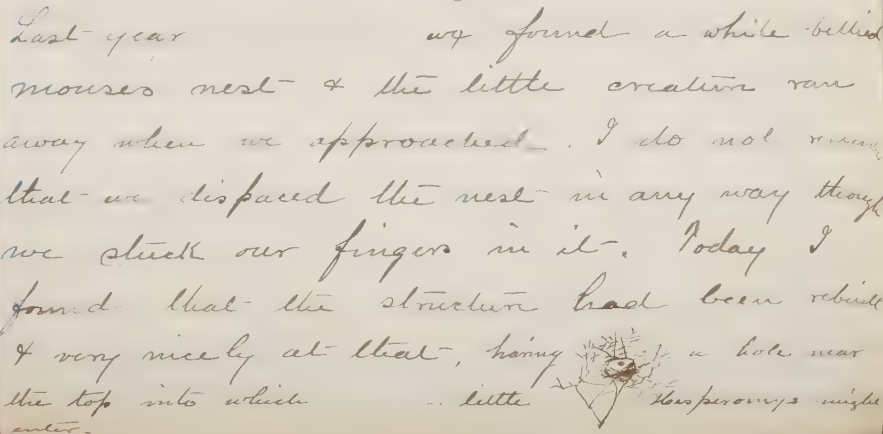 Last year we found a white bellied
mouses nest & the little creature ran
away when we approached. I do not
that we dispaced the nest in any way though
we stuck our fingers in it. Today I
found that the structure had been rebuilt
& very nicely at that, having a hole near
the top into which little Hesperomys might
enter.